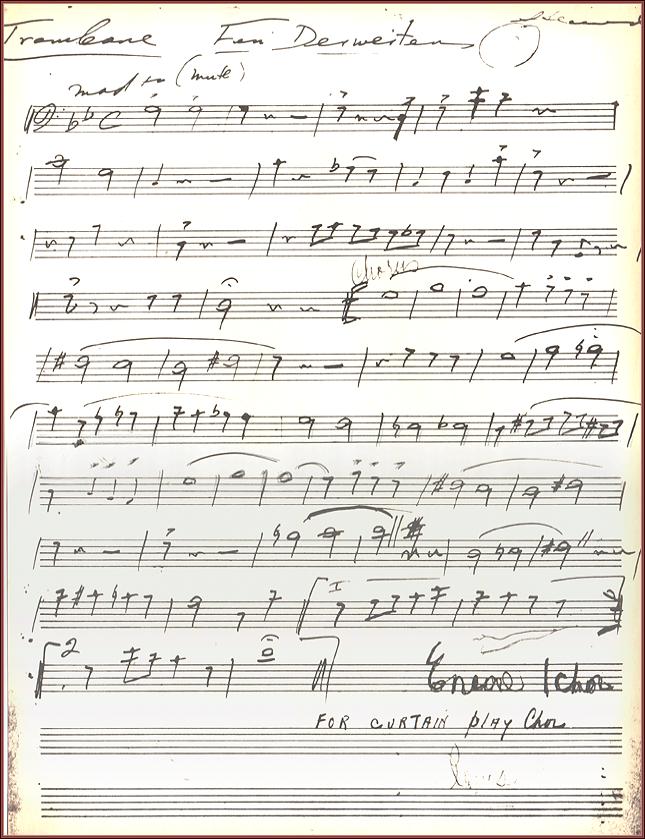 Trombone
mod to (mute)
Chorus
I
2
Encore 1 chor
FOR CURTAIN play Chor